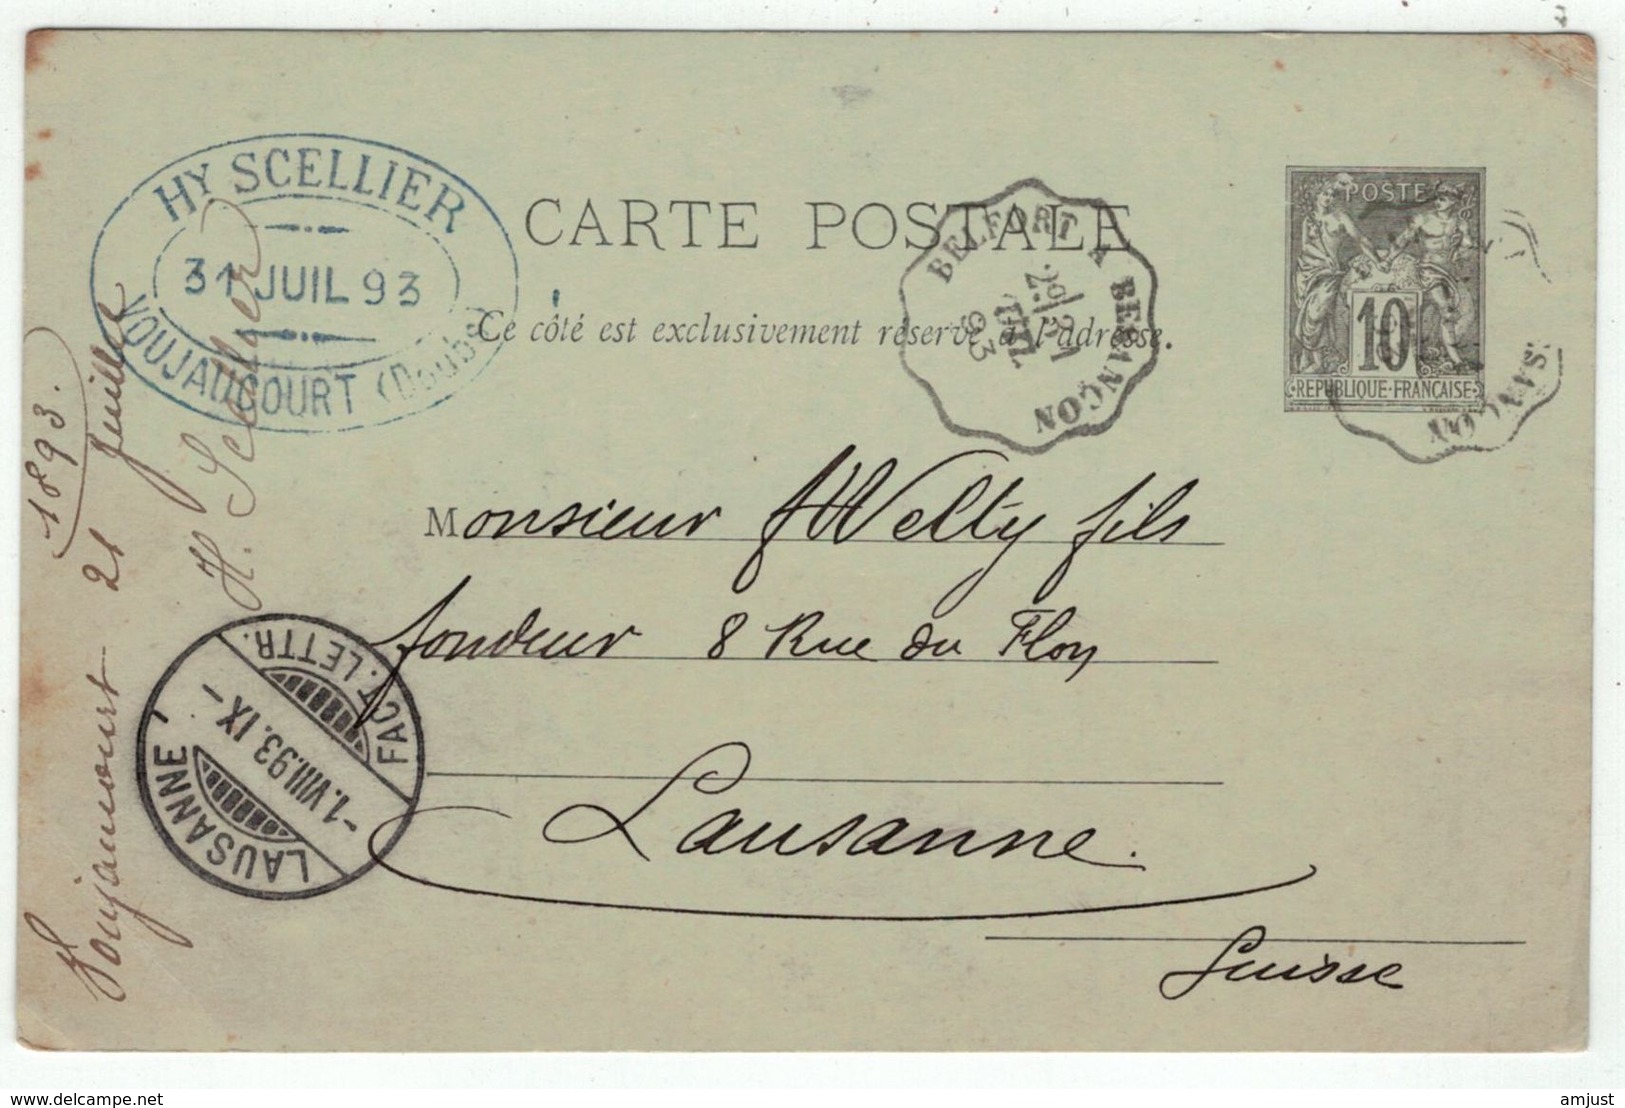 HY SCELLIER
31 JUIL 93
VOUJAUCOURT (Doubs)
CARTE POSTALE
Ce côté est exclusivement réservé à l'adresse.
BELFORT A BESANÇON
31
JUIL
93
POSTE
10
REPUBLIQUE-FRANÇAISE
Monsieur Welty fils
fondeur 8 Rue du Flon
Lausanne.
Suisse
Voujaucourt 21 Juillet
1893.
H. Scellier
LAUSANNE
-1.VIII.93.IX-
FACT.LETTR.
delcampe.net
amjust